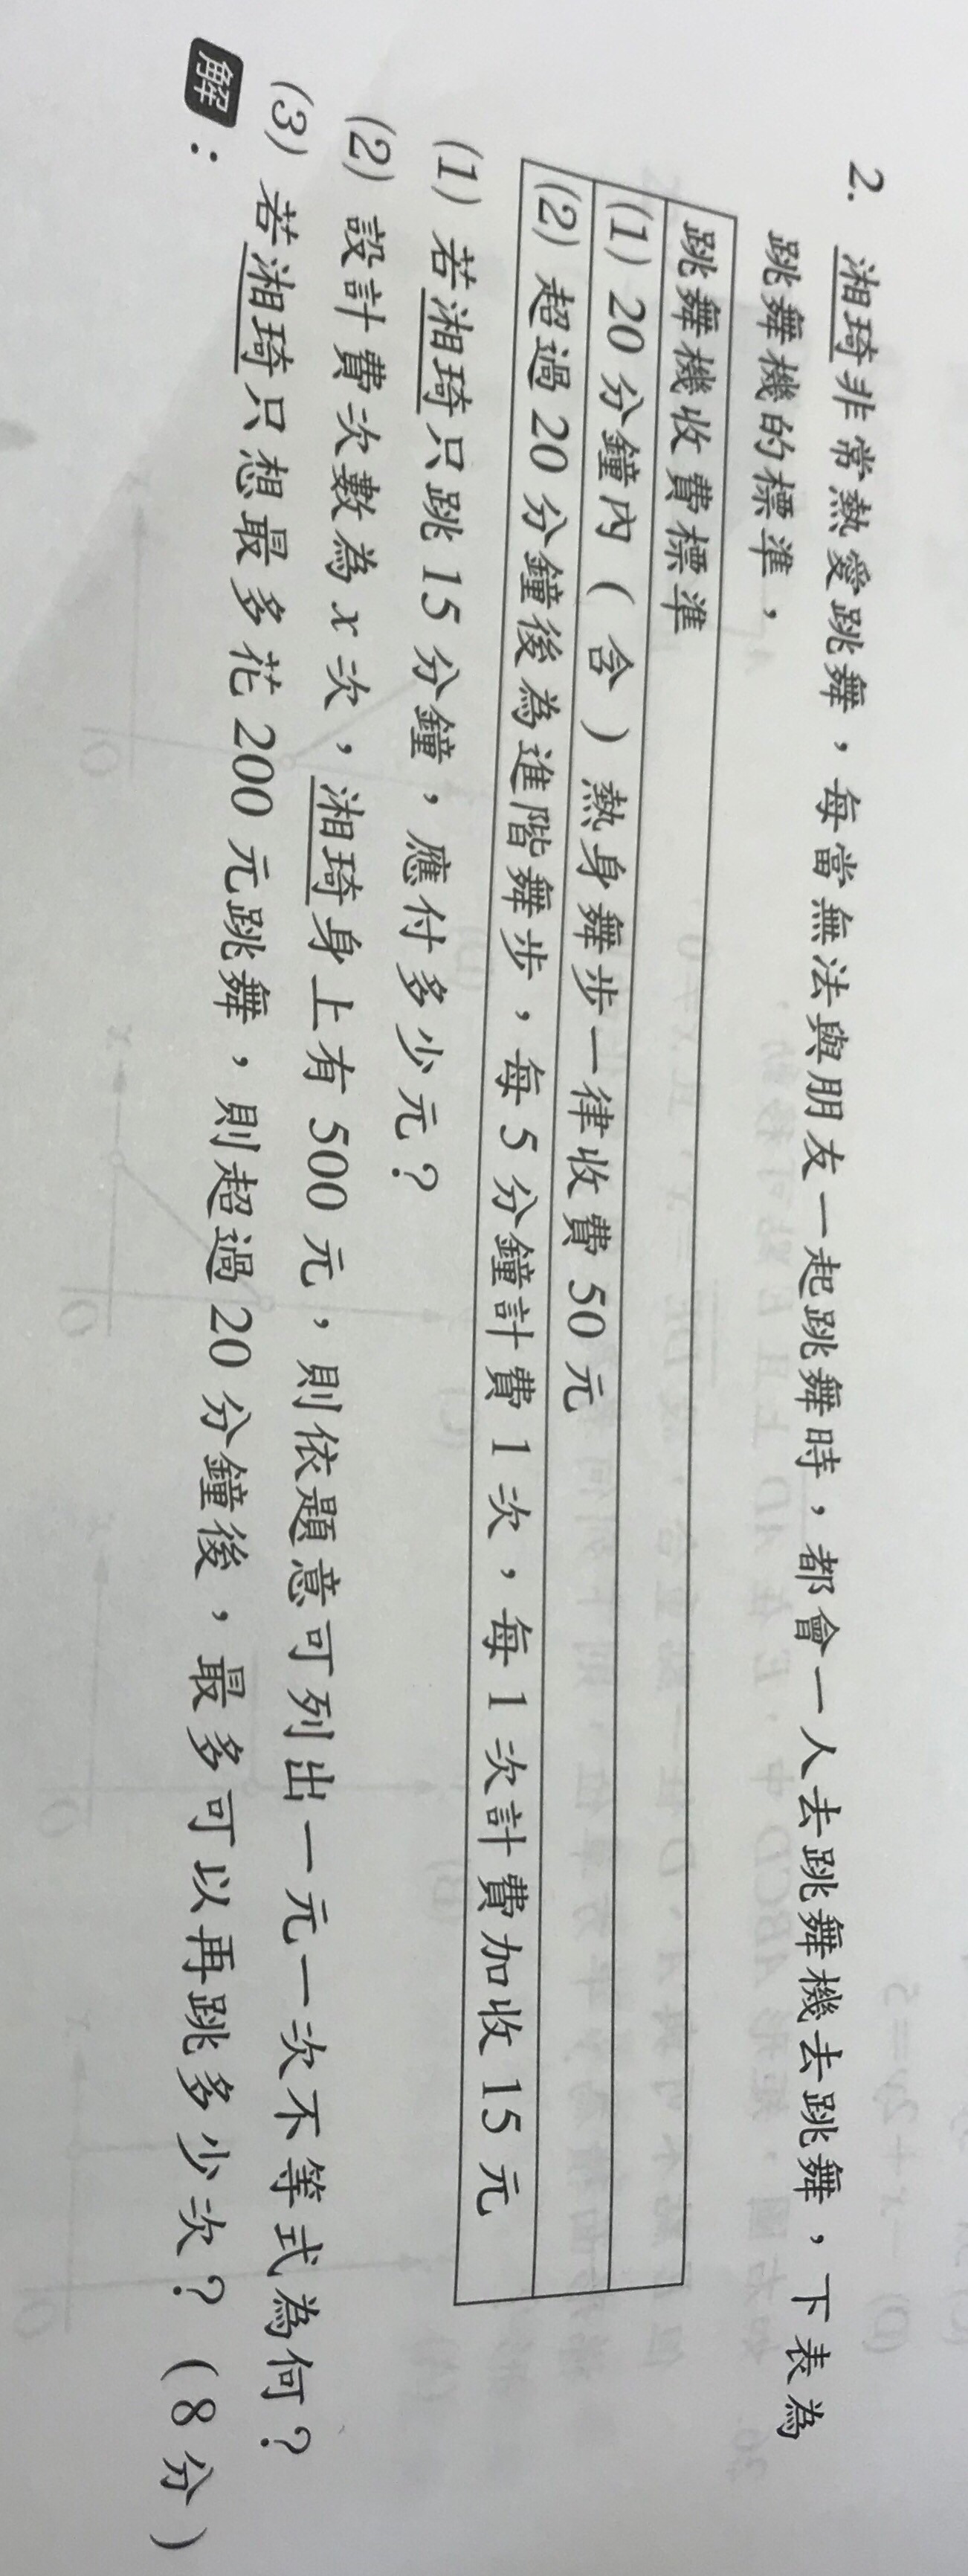 2. 湘琦非常熱愛跳舞，每當無法與朋友一起跳舞時，都會一人去跳舞機去跳舞，下表為
跳舞機的標準，
跳舞機收費標準
(1) 20 分鐘內（含）熱身舞步一律收費 50 元
(2) 超過 20 分鐘後為進階舞步，每 5 分鐘計費 1 次，每 1 次計費加收 15 元
(1) 若湘琦只跳 15 分鐘，應付多少元？
(2) 設計費次數為 x 次，湘琦身上有 500 元，則依題意可列出一元一次不等式為何？
(3) 若湘琦只想最多花 200 元跳舞，則超過 20 分鐘後，最多可以再跳多少次？(8 分)
解：